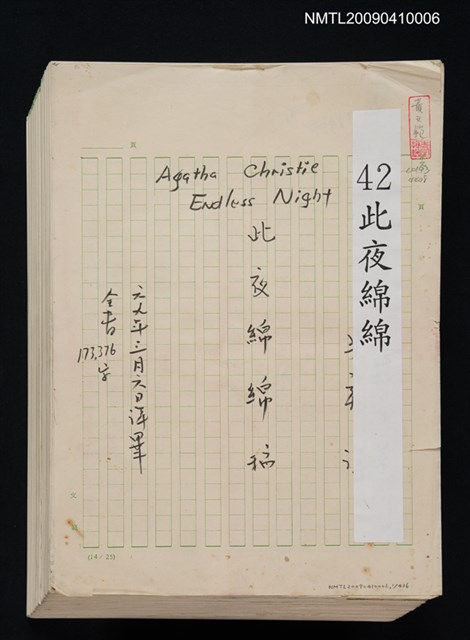 NMTL20090410006
Agatha Christie
Endless Night
42此夜綿綿
此夜綿綿稿
六九年三月六日譯畢
全書
173,376
字
(14/25)